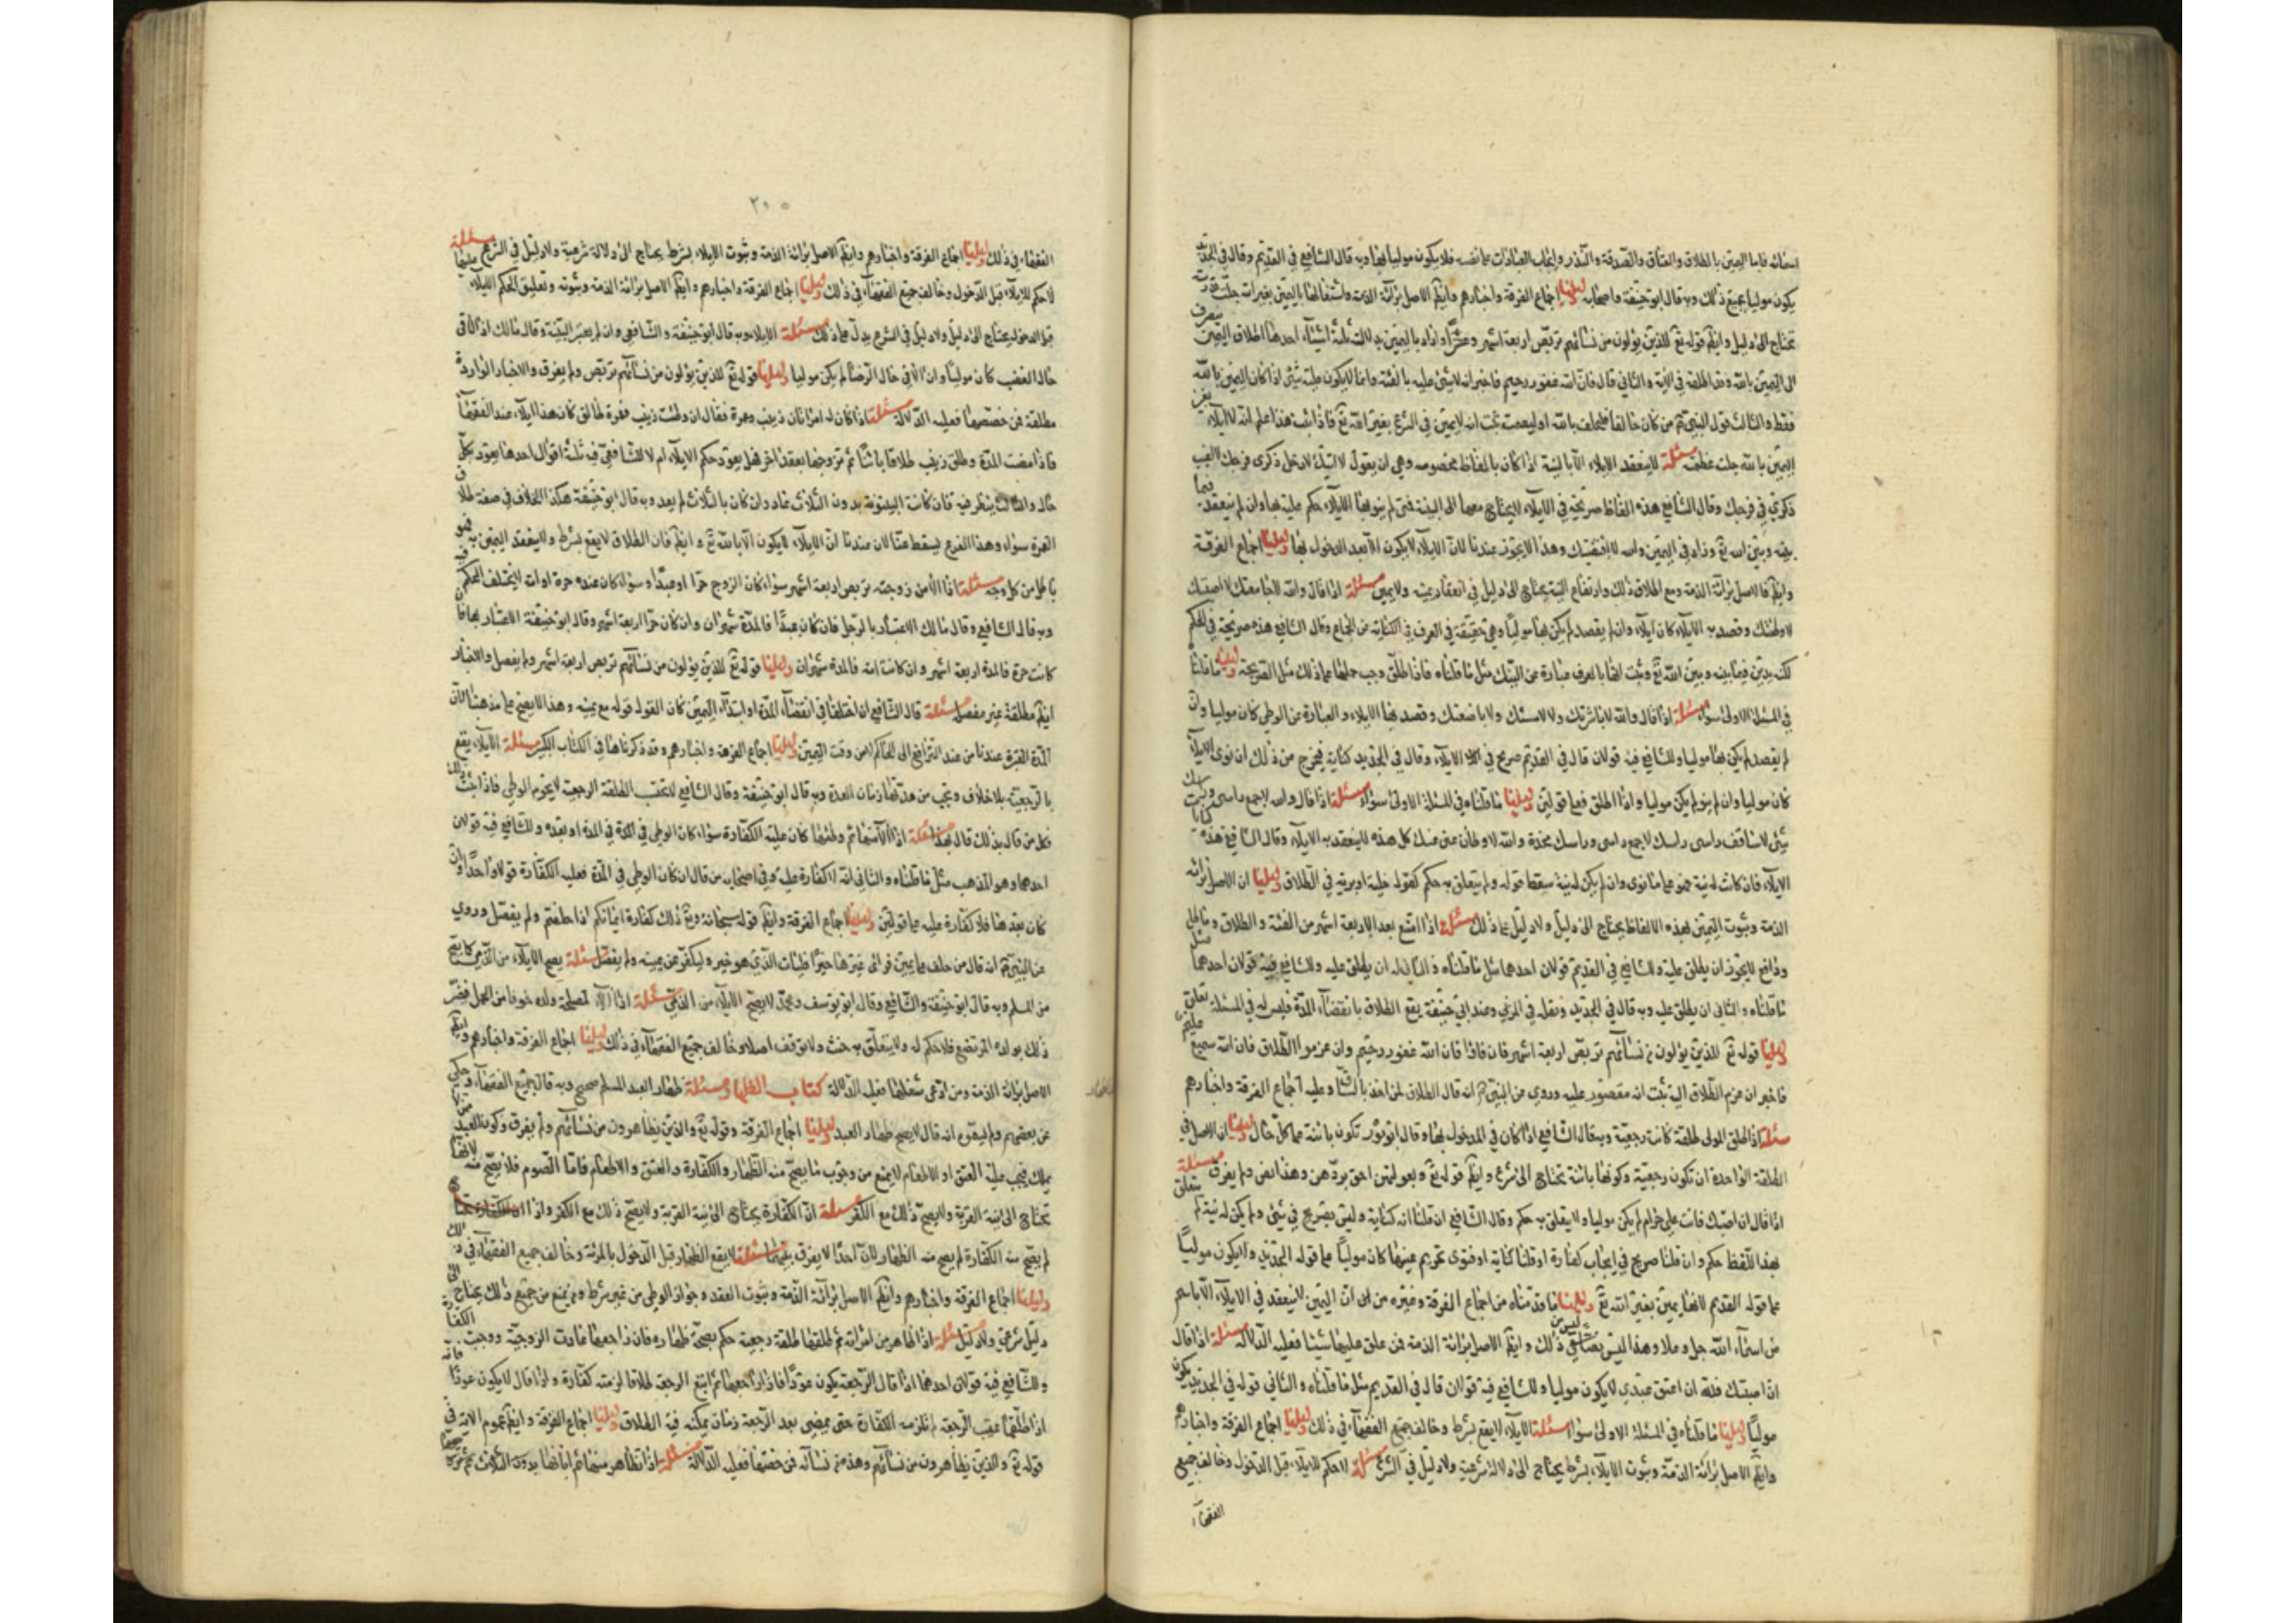 اسمائه فاما اليمين بالطلاق والعتاق والصدقة والنذر وايجاب العبادات على نفسه فلا يكون موليا بها وبه قال الشافعي في القديم وقال في الجديد
يكون موليا بجميع ذلك وبه قال ابو حنيفة واصحابه دليلنا اجماع الفرقة واخبارهم وايضا الاصل برائة الذمة واشتغالها باليمين بغير الله جلت قدرته
تحتاج الى دليل وايضا قوله تع للذين يؤلون من نسائهم تربص اربعة اشهر
الى اليمين بالله وقد اطلقه في الاية والثاني قال فان الله غفور رحيم فاخبر انه لا شئ عليه بالفئة وانما لا يكون عليه شئ اذا كان اليمين بالله
فقط والثالث قول النبي من كان حالفا فليحلف بالله او ليصمت ثبت انه لا يمين في الشرع بغير الله تع فاذا ثبت هذا علم انه لا ايلاء بغير
اليمين بالله جلت عظمته مسئلة لا ينعقد الايلاء الا بالنية اذا كان بالفاظ مخصوصه وهي ان يقول لا انيك لا ادخل ذكري فرجك لا اغيب
ذكري في فرجك وقال الشافعي هذه الفاظ صريحة في الايلاء لا يحتاج معها الى النية فمتى لم ينو بها الايلاء حكم عليه بها وان لم ينعقد فيما
بينه وبين الله تع وزاد في اليمين والله لا افتضتك وهذا لا يجوز عندنا لان الايلاء لا يكون الا بعد الدخول بها دليلنا اجماع الفرقة
وايضا فالاصل برائة الذمة ومع اطلاق ذلك وارتفاع النية يحتاج الى دليل في انعقاد يمينه ولا يمين مسئلة اذا قال والله لا جامعتك لا اصبتك
لا وطئتك وقصد به الايلاء كان ايلاء وان لم يقصد لم يكن بها موليا وهي حقيقة في العرف في الكناية عن الجماع وقال الشافعي هذه صريحة في الحكم
لكنه يدين فيما بينه وبين الله تع وثبت انها بالعرف عبارة عن النيك مثل ما قلناه فاذا اطلق وجب حملها على ذلك مثل الصريحة دليلنا ما قلناه
في المسئلة الاولى سواء مسئلة اذا قال والله لا باشرتك ولا لامستك ولا باضعتك وقصد بها الايلاء والعبارة عن الوطي كان موليا وان
لم يقصد لم يكن بها موليا وللشافعي فيه قولان قال في القديم صريح في الايلاء وقال في الجديد كناية فيخرج من ذلك ان نوى الايلاء
كان موليا وان لم ينو لم يكن موليا واذا اطلق فعلى قولين دليلنا ما قلناه في المسئلة الاولى سواء مسئلة اذا قال والله لا جمع راسي وراسك
شئ لا ساقف راسي راسك لا جمع راسي وراسك مخدة والله لاوطان عنى عنك كل هذه لا ينعقد به الايلاء وقال الشافعي هذه
الايلاء فان كانت له نية فهو على ما نوى وان لم يكن له نية سقط قوله ولم يتعلق به حكم كقوله خلية او برية في الطلاق دليلنا ان الاصل برائة
الذمة وثبوت اليمين بهذه الالفاظ يحتاج الى دليل ولا دليل على ذلك مسئلة اذا امتنع بعد الاربعة اشهر من الفئة والطلاق وماطل
ودافع لا يجوز ان يطلق عليه وللشافعي في القديم قولان احدهما مثل ما قلناه والثاني له ان يطلق عليه وللشافعي فيه قولان احدهما مثل
ما قلناه والثاني ان يطلق عليه وبه قال في الجديد ونقله في المزني وعند ابي حنيفة يقع الطلاق بانقضاء المدة فليس له في المسئلة تعلق
دليلنا قوله تع للذين يؤلون من نسائهم تربص اربعة اشهر فان فاؤا فان الله غفور رحيم وان عزموا الطلاق فان الله سميع عليم
فاخبر ان عزم الطلاق اليه ثبت انه مقصور عليه وروي عن النبي انه قال الطلاق لمن اخذ بالساق وعليه اجماع الفرقة واخبارهم
مسئلة اذا طلق المولى طلقة كانت رجعية وبه قال الشافعي اذا كان في المدخول بها وقال ابو ثور تكون بائنة على كل حال دليلنا ان الاصل في
الطلقة الواحدة ان تكون رجعية وكونها بائنة يحتاج الى شرع وايضا قوله تع وبعولتهن احق بردهن وهذا نص ولم يفرق مسئلة
اذا قال ان اصبتك فانت علي حرام لم يكن موليا ولا يتعلق به حكم وقال الشافعي ان قلنا انه كناية وليس بصريح في شئ ولم يكن له نية لم يتعلق
بهذا اللفظ حكم وان قلنا صريح في ايجاب كفارة او قلنا كناية او نوى تحريم عينها كان موليا على قوله الجديد ولا يكون موليا
على قوله القديم لانها يمين بغير الله تع دليلنا ما قدمناه من اجماع الفرقة وغيره من ان اليمين لا ينعقد في الايلاء الا باسم
من اسماء الله جل وعلا وهذا ليس من ذلك وايضا الاصل برائة الذمة فمن علق عليها شيئا فعليه الدلالة مسئلة اذا قال
اذا صبتك فلله ان اعتق عبدي لا يكون موليا وللشافعي فيه قولان قال في القديم مثل ما قلناه والثاني قوله في الجديد يكون
موليا دليلنا ما قلناه في المسئلة الاولى سواء مسئلة الايلاء لا يقع بشرط وخالف جميع الفقهاء في ذلك دليلنا اجماع الفرقة واخبارهم
وايضا الاصل برائة الذمة وثبوت الايلاء بشرط يحتاج الى دلالة شرعية ولا دليل في الشرع مسئلة لا حكم للايلاء قبل الدخول وخالف جميع
الفقهاء
٢٠٥
الفقهاء في ذلك دليلنا اجماع الفرقة واخبارهم وايضا الاصل برائة الذمة وثبوت الايلاء بشرط يحتاج الى دلالة شرعية ولا دليل في الشرع عليها مسئلة
لا حكم للايلاء قبل الدخول وخالف جميع الفقهاء في ذلك دليلنا اجماع الفرقة واخبارهم وايضا الاصل برائة الذمة وثبوته وتعليق الحكم للايلاء
قبل الدخول يحتاج الى دليل ولا دليل في الشرع يدل على ذلك مسئلة الايلاء وبه قال ابو حنيفة والشافعي وان لم يعتبر البينة وقال مالك اذا الاقى
حال الغضب كان موليا وان الا في حال الرضا لم يكن موليا دليلنا قوله تع للذين يؤلون من نسائهم تربص ولم يفرق والاخبار الواردة
مطلقة فمن خصصها فعليه الدلالة مسئلة اذا كان له امراتان زينب وعمرة فقال ان وطئت زينب فعمرة طالق كان هذا ايلاء عند الفقهاء
فاذا مضت المدة وطلق زينب طلاقا بائنا ثم تزوجها بعقد اخر هل يعود حكم الايلاء ام لا للشافعي فيه ثلثة اقوال احدها يعود بكل
حال والثالث ينظر فيه فان كانت البينونة بدون الثلاث عاد وان كان بالثلاث لم يعد وبه قال ابو حنيفة هكذا الخلاف في صفة طلاق
العمرة سواء وهذا الفرع يسقط عنا لان عندنا ان الايلاء لا يكون الا بالله تع وايضا فان الطلاق لا يقع بشرط ولا ينعقد اليمين به فهو
باطل من كل وجه مسئلة اذا الا من زوجته تربص اربعة اشهر سواء كان الزوج حرا او عبدا وسواء كان عنده حرة او امة لا يختلف الحكم فيه
وبه قال الشافعي وقال مالك الاعتبار بالرجل فان كان عبدا فالمدة شهران وان كان حرا اربعة اشهر وقال ابو حنيفة الاعتبار بها فان
كانت حرة فالمدة اربعة اشهر وان كانت امة فالمدة شهران دليلنا قوله تع للذين يؤلون من نسائهم تربص اربعة اشهر ولم يفصل والاخبار
ايضا مطلقة غير مفصلة مسئلة قال الشافعي ان اختلفا في انقضاء المدة او ابتداء اليمين كان القول قوله مع يمينه وهذا لا يصح على مذهبنا لان
المدة المقررة عندنا من عند الترافع الى الحاكم لا من وقت اليمين دليلنا اجماع الفرقة واخبارهم وقد ذكرناها في الكتاب الكبير مسئلة الايلاء يقع
بالرجعية بلا خلاف ويحتسب من مدتها زمان العدة وبه قال ابو حنيفة وقال الشافعي لا يحتسب الطلقة الرجعية لا يحرم الوطي فاذا ثبت ذلك
فكل من قال بذلك قال بهذا مسئلة اذا الا منها ثم وطئها كان عليه الكفارة سواء كان الوطي في المدة او بعده وللشافعي فيه قولان
احدهما وهو المذهب مثل ما قلناه والثاني انه لا كفارة عليه وفي اصحابه من قال ان كان الوطي في المدة فعليه الكفارة قولا واحدا وان
كان بعدها فلا كفارة عليه على قولين دليلنا اجماع الفرقة وايضا قوله سبحانه وتع ذلك كفارة ايمانكم اذا حلفتم ولم يفصل وروي
عن النبي انه قال من حلف على يمين فراى غيرها خيرا منها فليات الذي هو خير وليكفر عن يمينه ولم يفصل مسئلة يصح الايلاء من الذمي كما يصح
من المسلم وبه قال ابو حنيفة والشافعي وقال ابو يوسف ومحمد لا يصح الايلاء من الذمي مسئلة اذا الا لمصلحة ولده خوفا من الحمل فيضر
ذلك بولده المرتضع فلا حكم له ولا يتعلق به حنث ولا يوقف اصلا وخالف جميع الفقهاء في ذلك دليلنا اجماع الفرقة واخبارهم وايضا
الاصل برائة الذمة ومن ادعى شغلها فعليه الدلالة كتاب الظهار مسئلة ظهار العبد المسلم صحيح وبه قال جميع الفقهاء وحكي
عن بعضهم ولم يسموه انه قال لا يصح ظهار العبد دليلنا اجماع الفرقة وقوله تع والذين يظاهرون من نسائهم ولم يفرق وكون العبد
يملك فيجب عليه العتق او الاطعام لا يمنع من وجوب ما يصح منه الظهار والكفارة والعتق والاطعام فاما الصوم فلا يصح منه لانها
تحتاج الى نية القربة ولا يصح ذلك مع الكفر مسئلة ان الكفارة يحتاج الى نية القربة ولا يصح ذلك مع الكفر واذا
لم يصح منه الكفارة لم يصح منه الظهار لان احدا لا يفرق بينهما مسئلة لا يقع الظهار قبل الدخول بالمرئة وخالف جميع الفقهاء في ذلك
دليلنا اجماع الفرقة واخبارهم وايضا الاصل برائة الذمة وثبوت العقد وجواز الوطي من غير شرط ومن يمنع من جميع ذلك يحتاج الى
دليل شرعي ولا دليل مسئلة اذا ظاهر من امراته ثم طلقها طلقة رجعية حكم بصحة ظهاره فان راجعها عادت الزوجية ووجبت الكفارة
وللشافعي فيه قولان احدهما اذا قال الرجعة يكون عودا فاذا راجعها ثم اتبع الرجعة طلاقا لزمته كفارة واذا قال لا يكون عودا فانه
اذا طلقها عقيب الرجعة لم تلزمه الكفارة حتى يمضي بعد الرجعة زمان يمكنه فيه الطلاق دليلنا اجماع الفرقة وايضا عموم الاية في
قوله تع والذين يظاهرون من نسائهم وهذه من نسائه فمن خصها فعليه الدلالة مسئلة اذا تظاهر منها ثم ابانها بدون الثلاث ثم تزوجها